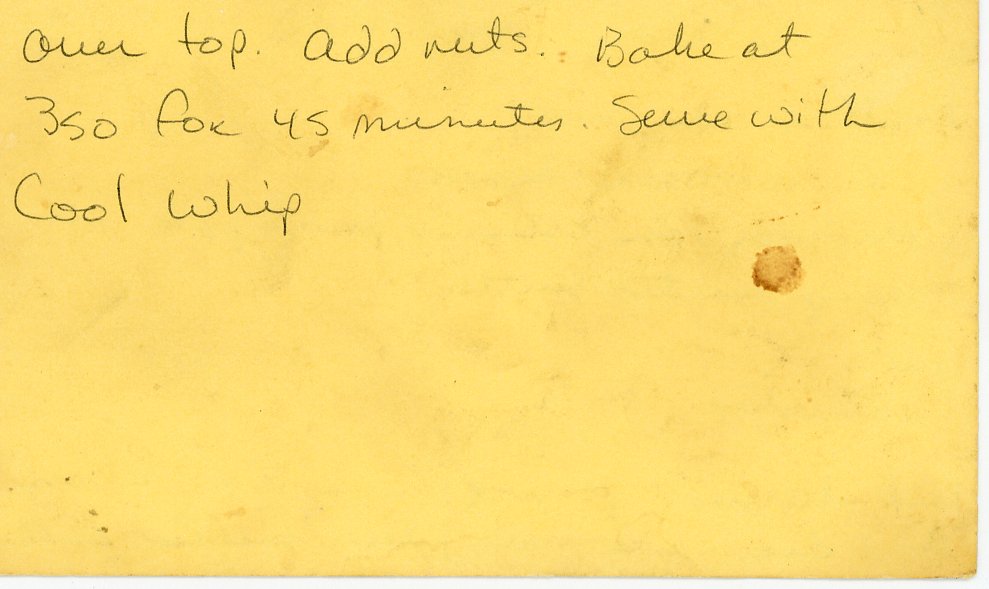 over top. Add nuts. Bake at
350 for 45 minutes. Serve with
Cool Whip